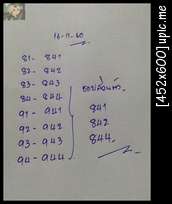 16-11-60
81- 841
82- 842
83- 843
84- 844
91 - 941
92 - 942
93 - 943
94 - 944
841
842
844.
[452x600] upic.me